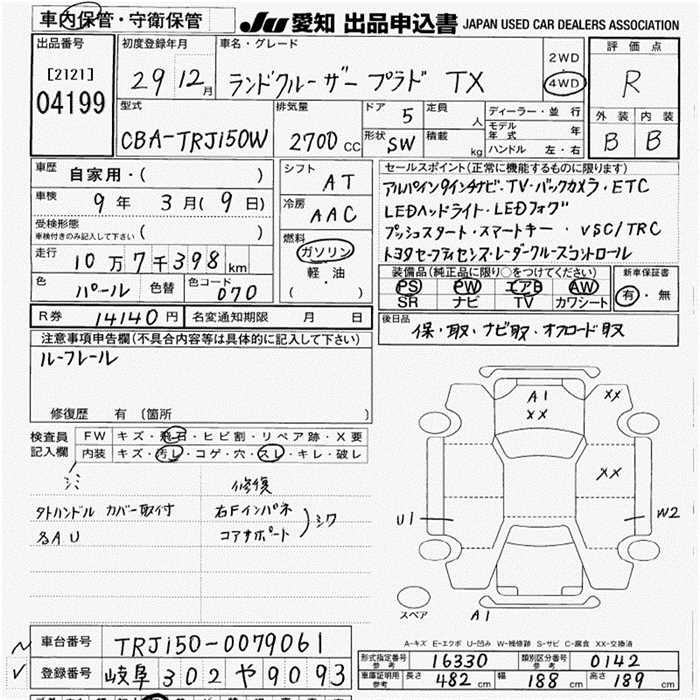 車内保管・守衛保管
JU 愛知 出品申込書 JAPAN USED CAR DEALERS ASSOCIATION
出品番号
[2121]
04199
初度登録年月
29 12月
車名・グレード
ランドクルーザー プラド TX
2WD
4WD
評価点
R
外装 内装
B B
型式
CBA-TRJ150W
排気量
2700 CC
ドア
5
形状
SW
定員
人
積載
kg
ディーラー・並行
モデル年式 年
ハンドル 左・右
車歴
自家用・( )
車検
9年 3月(9日)
受検形態
車検付きのみ記入して下さい ( )
走行
10万7千398km
色
パール
色替
色コード
070
シフト
AT
冷房
AAC
燃料
ガソリン
軽・油
( ・ )
セールスポイント(正常に機能するものに限ります)
アルパイン9インチナビ・TV・バックカメラ・ETC
LEDヘッドライト・LEDフォグ
プッシュスタート・スマートキー・VSC/TRC
トヨタセーフティセンス・レーダークルーズコントロール
装備品(純正品に限り○をつけてください)
PS PW エアB AW
SR ナビ TV カワシート
新車保証書
有・無
R券 14140円
名変通知期限 月 日
後日品
保・取、ナビ取・オフロード取
注意事項申告欄(不具合内容等は具体的に記入して下さい)
ルーフレール
修復歴 有(箇所 )
検査員
記入欄
FW キズ・飛石・ヒビ割・リペア跡・X要
内装 キズ・汚レ・コゲ・穴・スレ・キレ・破レ
タトハンドル カバー取付
各AU
修復
右Fインパネ
コアサポート
シワ
A1
XX
XX
XX
U1
W2
スペア
A1
A-キズ E-エクボ U-凹み W-補修跡 S-サビ C-腐食 XX-交換済
車台番号
TRJ150-0079061
登録番号
岐阜 302 や 9093
形式指定番号
参考
16330
類別区分番号
参考
0142
車庫証明用
参考
長さ 482cm
幅 188cm
高さ 189cm